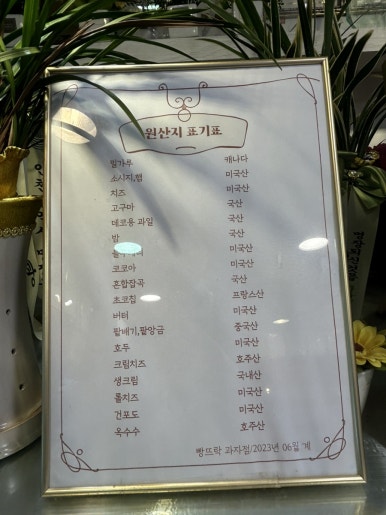 원산지 표기표
밀가루 캐나다
소시지,햄 미국산
치즈 미국산
고구마 국산
데코용 과일 국산
밤 국산
미국산
코코아 미국산
혼합잡곡 국산
초코칩 프랑스산
버터 미국산
팥배기,팥앙금 중국산
호두 미국산
크림치즈 호주산
생크림 국내산
롤치즈 미국산
건포도 미국산
옥수수 호주산
빵뜨락 과자점/2023년 06월